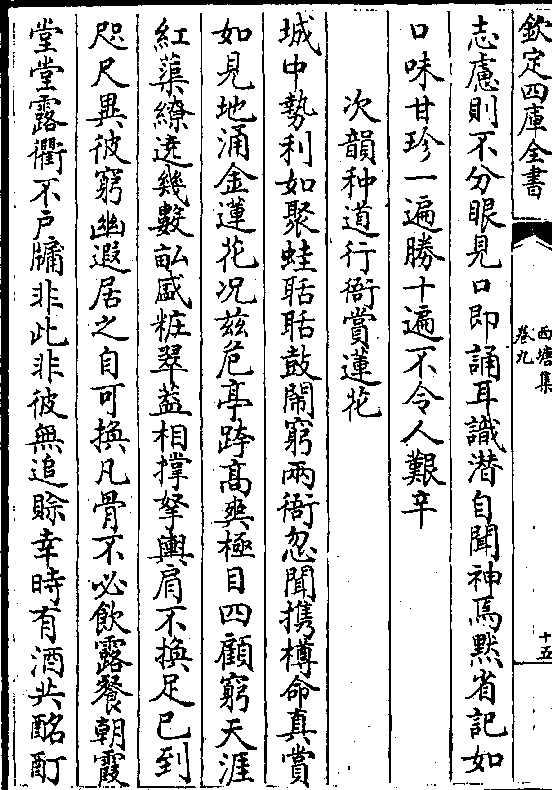 欽定四庫全書
西塘集
卷九
十五
志慮則不分眼見口即誦耳識潛自聞神焉默省記如
口味甘珍一遍勝十遍不令人艱辛
次韻种道行衙賞蓮花
城中勢利如聚蛙聒聒鼓鬧窮兩衙忽聞携樽命真賞
如見地涌金蓮花况兹危亭跨高爽極目四顧窮天涯
紅蕖繚遶幾數畝盛粧翠葢相撐拏輿肩不換足已到
咫尺異彼窮幽遐居之自可換凡骨不必飲露餐朝霞
堂堂露衢不戶牖非此非彼無追賒幸時有酒共酩酊